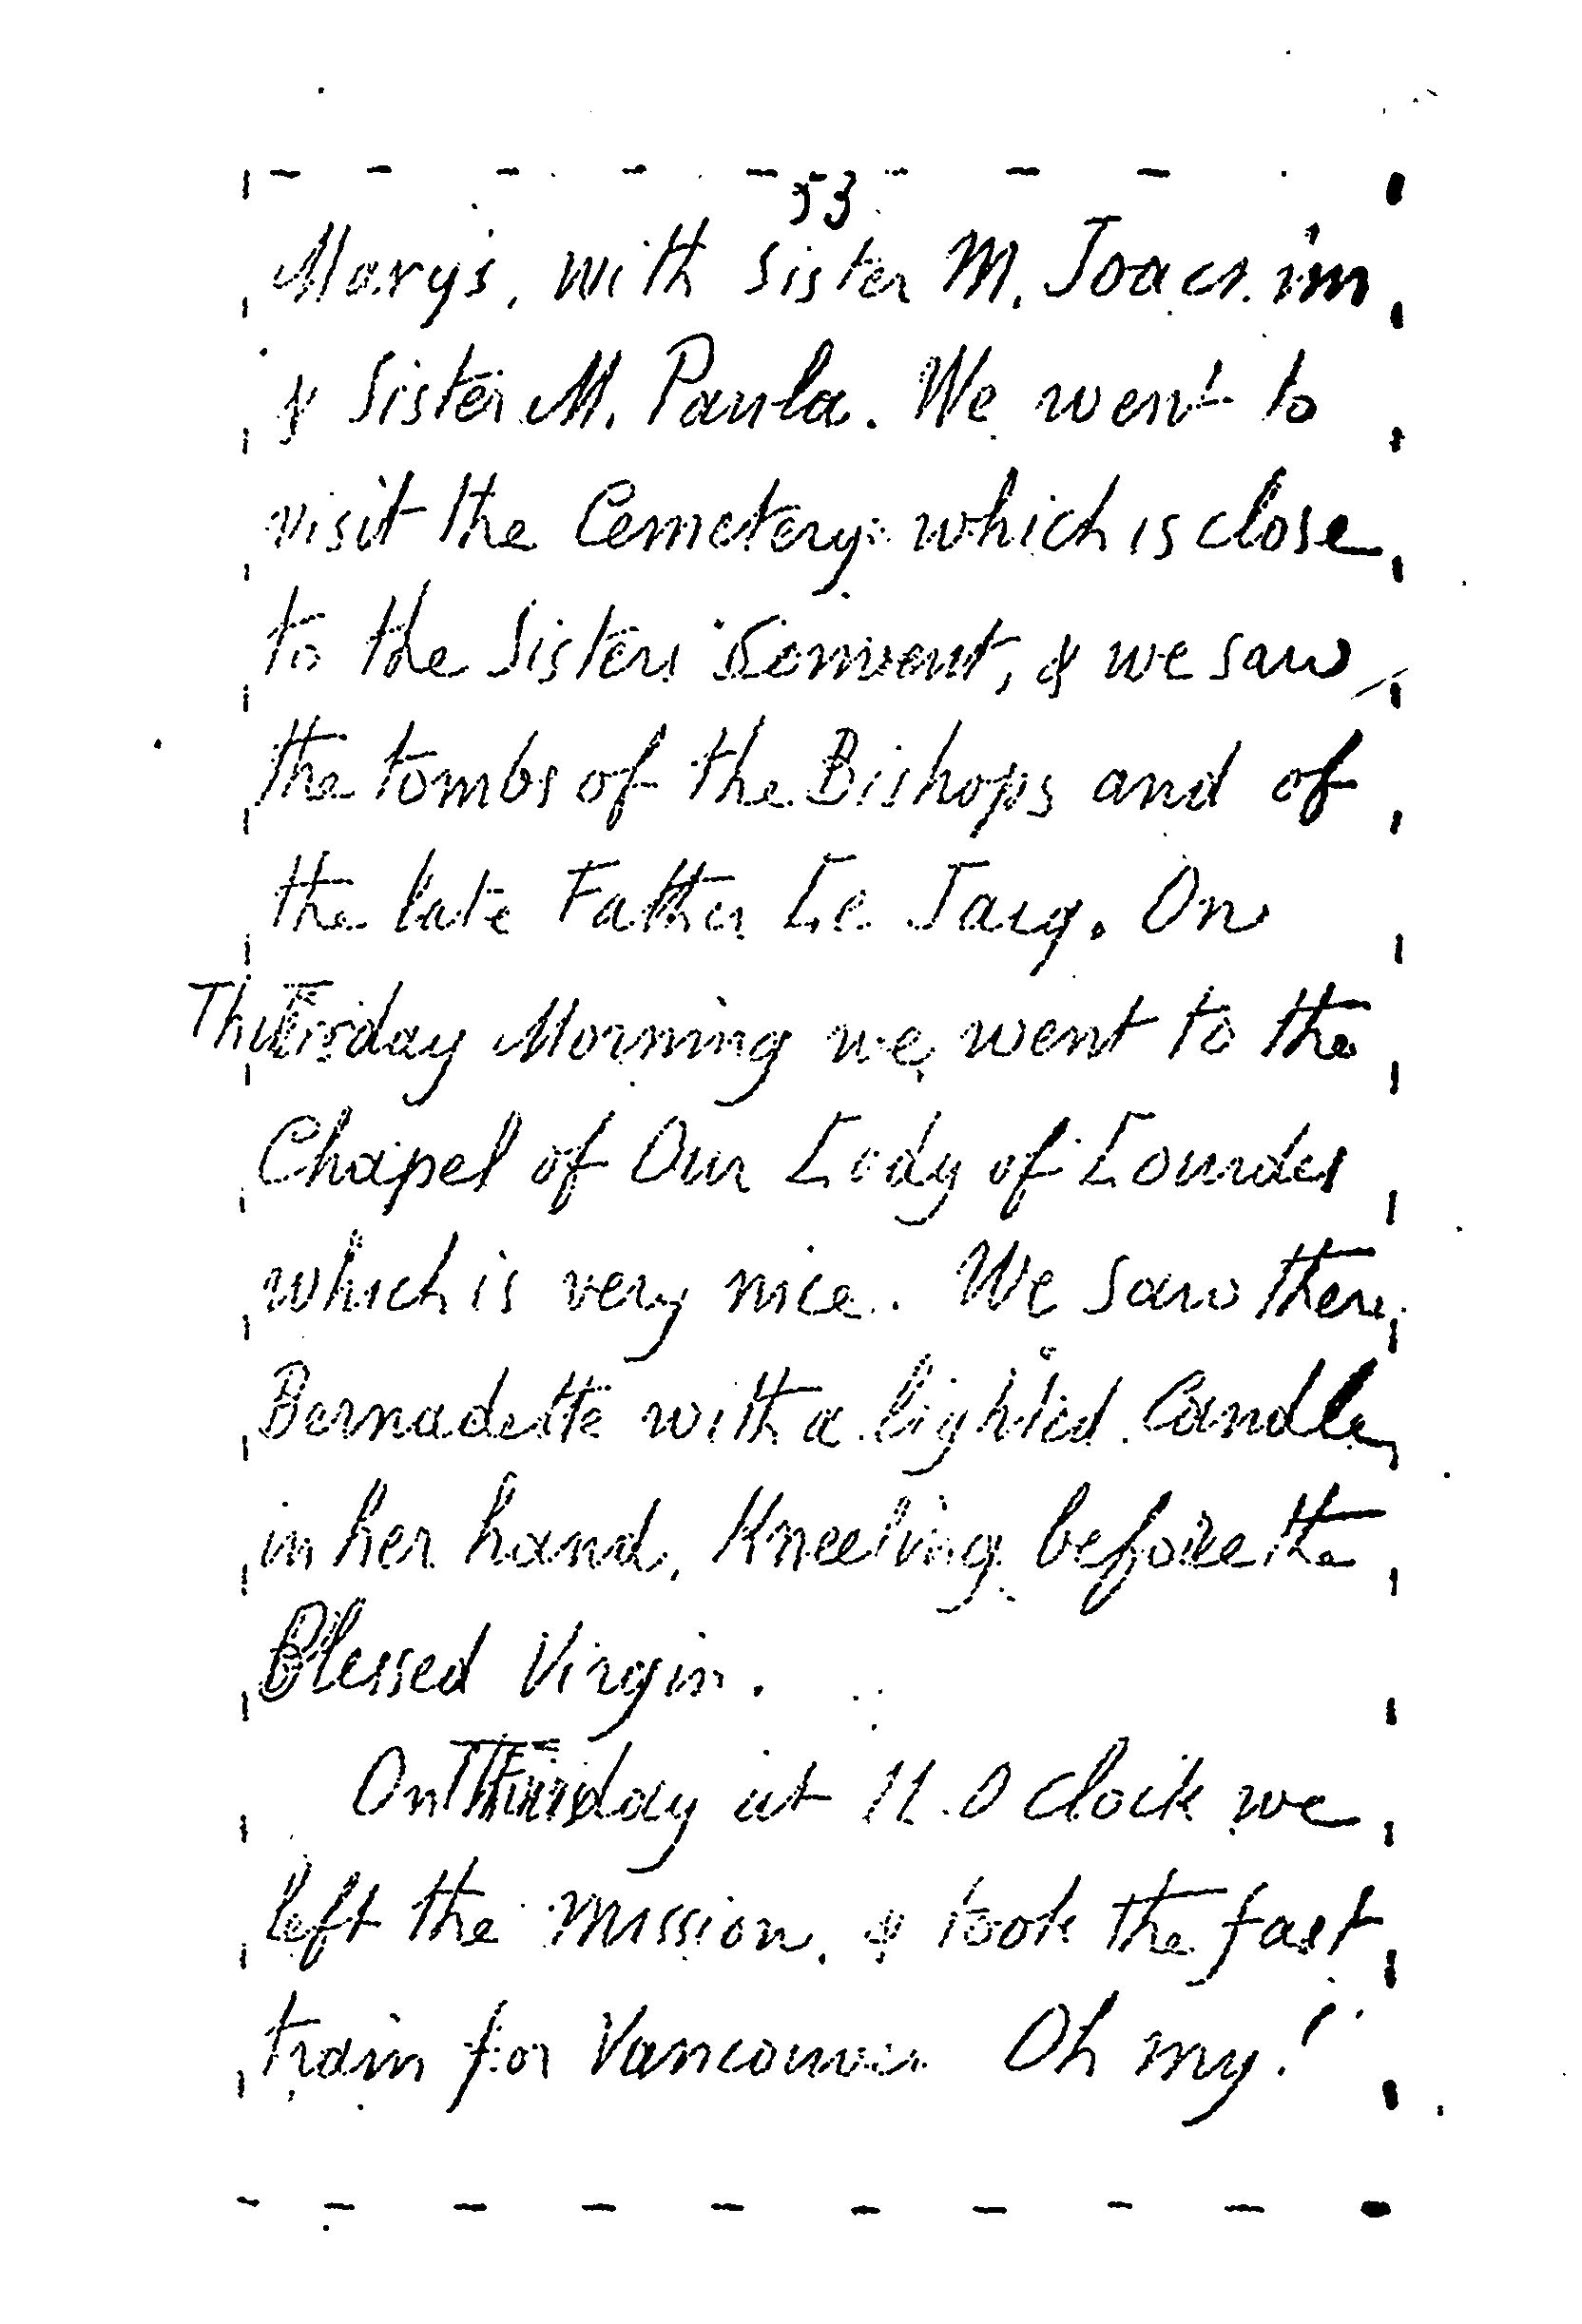 53
Marys, with Sister M. Joachim
& Sister M. Paula. We went to
visit the Cemetery which is close
to the Sisters Convent, & we saw
the tombs of the Bishops and of
the late Father Le Jacq. On
Thursday Morning we went to the
Chapel of Our Lady of Lourdes
which is very nice. We saw there
Bernadette with a lighted Candle
in her hand, Kneeling before the
Blessed Virgin.
On Thursday at 11.O Clock we
left the Mission, & took the fast
train for Vancouver Oh my!